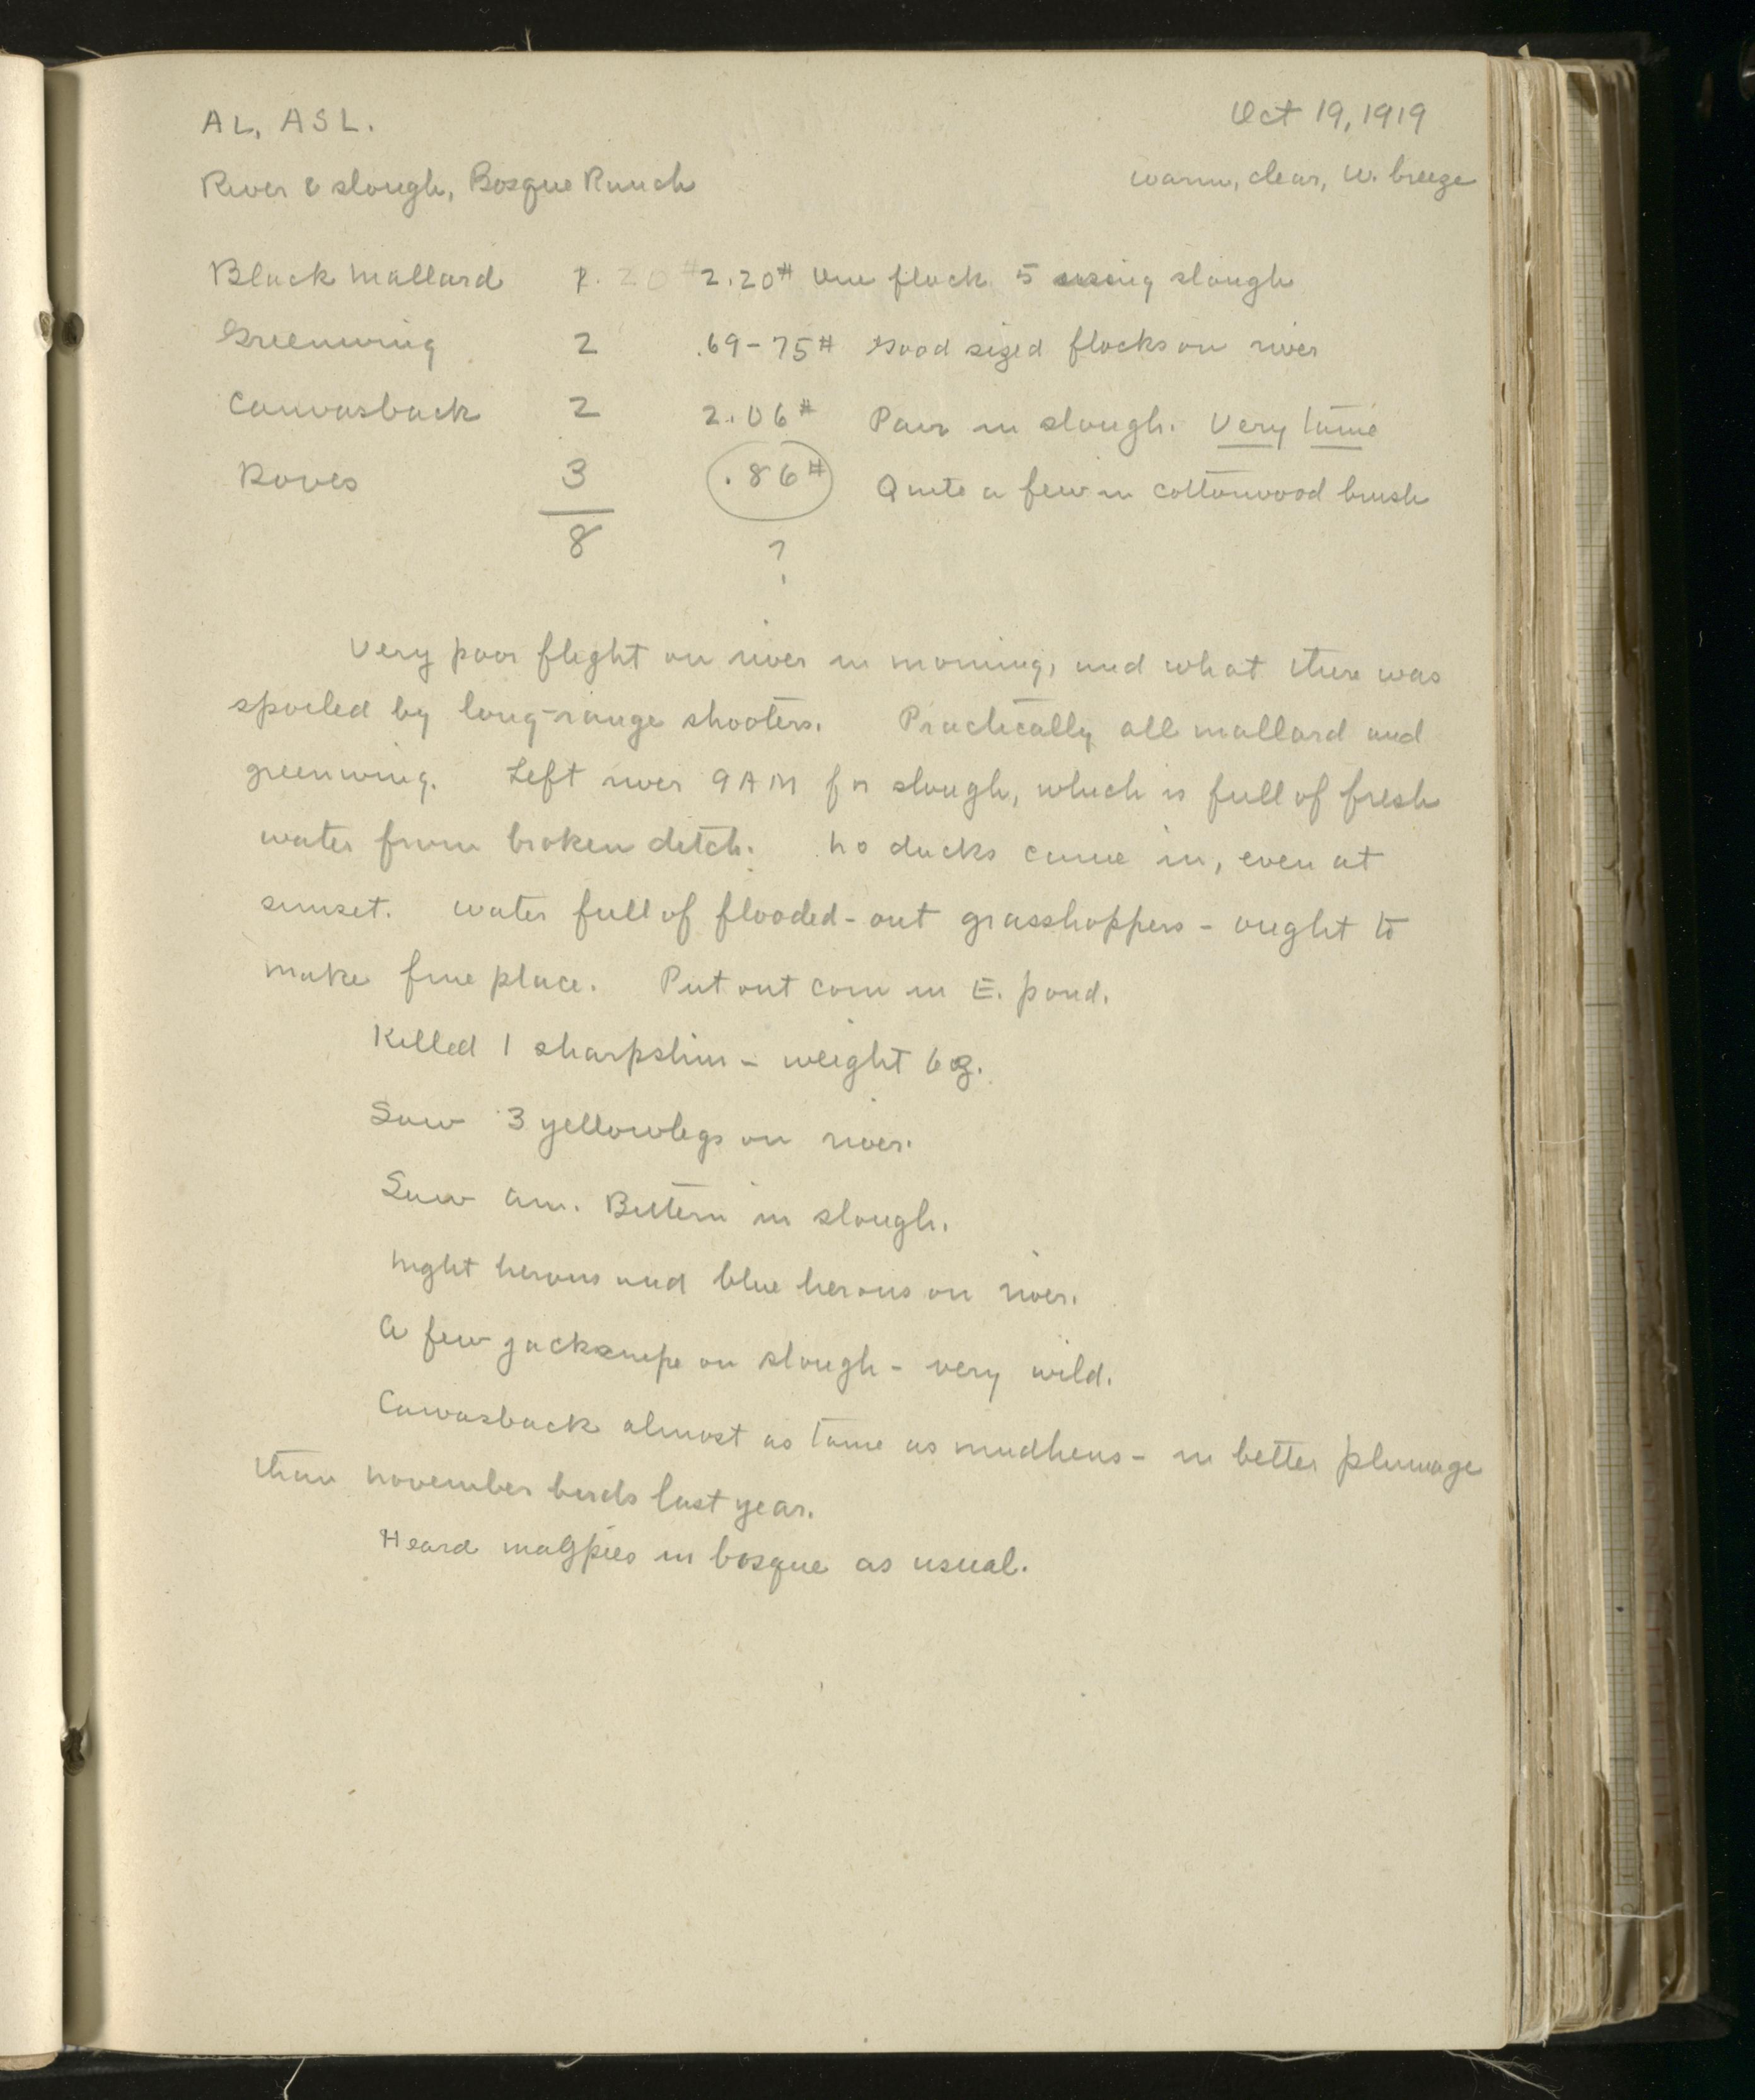 AL, ASL. Oct 19, 1919
River & slough, Bosque Ranch warm, clear, W. breeze
Black mallard 1 2.20# One flock 5 using slough
Greenwing 2 .69-75# Good sized flocks on river
Canvasback 2 2.06# Pair in slough. Very tame
Doves 3 .86# Quite a few in cottonwood brush
8 ?
Very poor flight on river in morning, and what there was
spoiled by long-range shooters. Practically all mallard and
greenwing. Left river 9AM for slough, which is full of fresh
water from broken ditch. No ducks came in, even at
sunset. Water full of flooded-out grasshoppers - ought to
make fine place. Put out corn in E. pond.
Killed 1 sharpshin - weight 6 oz.
Saw 3 yellowlegs on river.
Saw Am. Bittern in slough.
Night herons and blue herons on river.
A few jacksnipe on slough - very wild.
Canvasback almost as tame as mudhens - in better plumage
than November birds last year.
Heard magpies in bosque as usual.